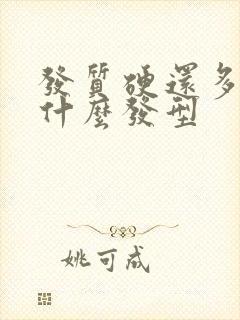 發質硬還多
什麼發型
姚可成